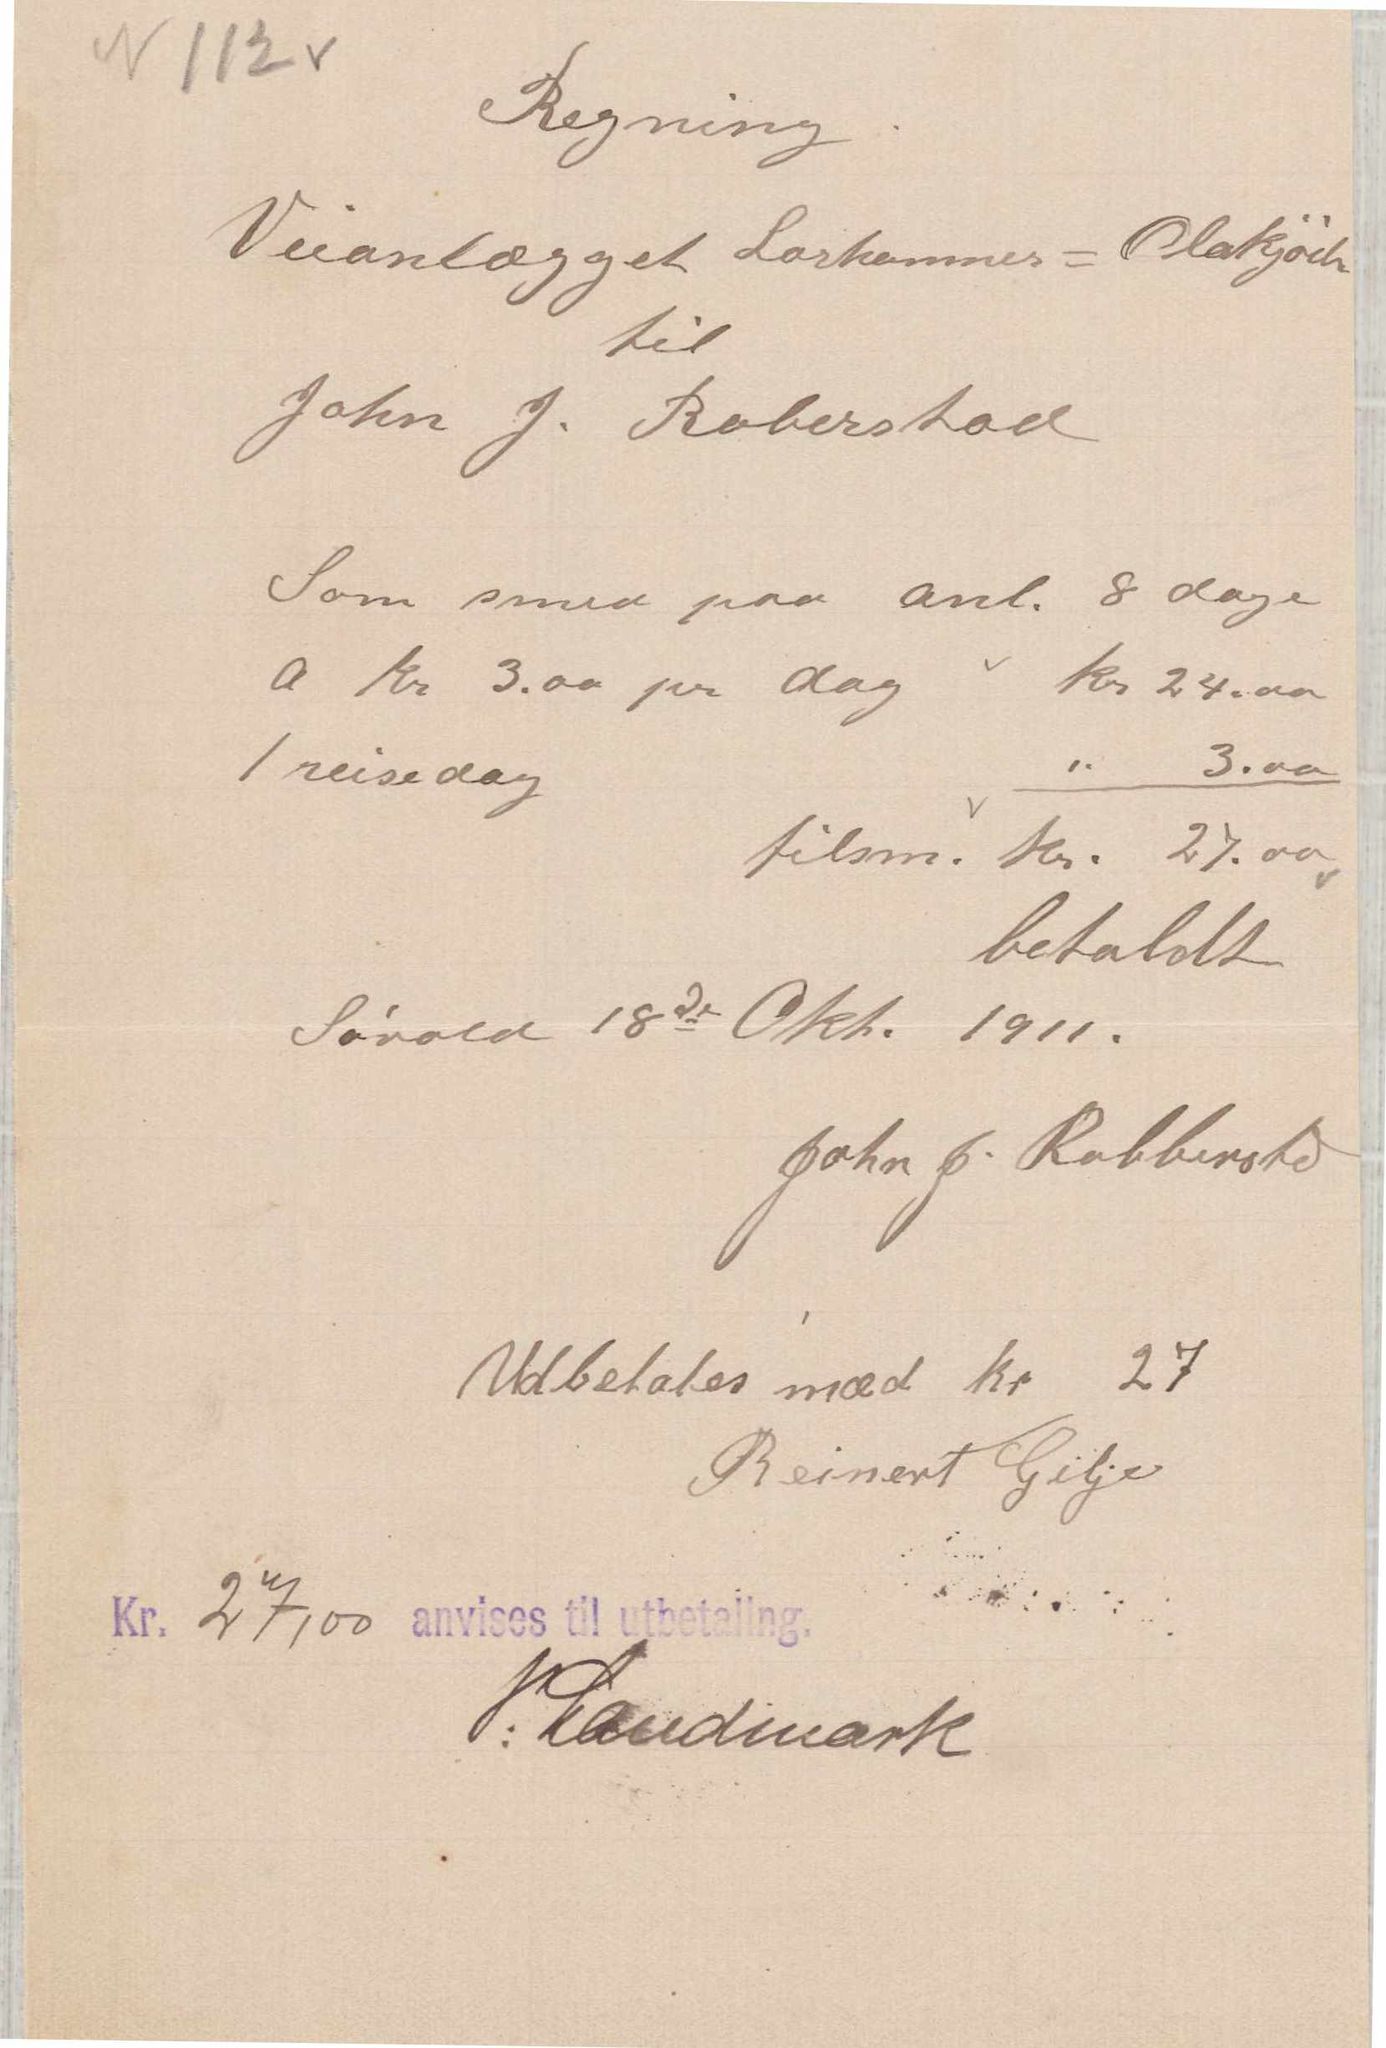 N 112 v
Regning.
Veianlægget Lorkammer = Olakjöeln
til
John J. Raberstad
Som smed paa anl. 8 dage
a kr 3.00 pr dag v kr 24.00
1 reisedag " 3.00
tilsm. kr. 27.00
betaldt
18de Okt. 1911.
John J. Rabberstd
Udbetales med kr 27
Reinert Gilje
Kr. 27,00 anvises til utbetaling.
Landmark